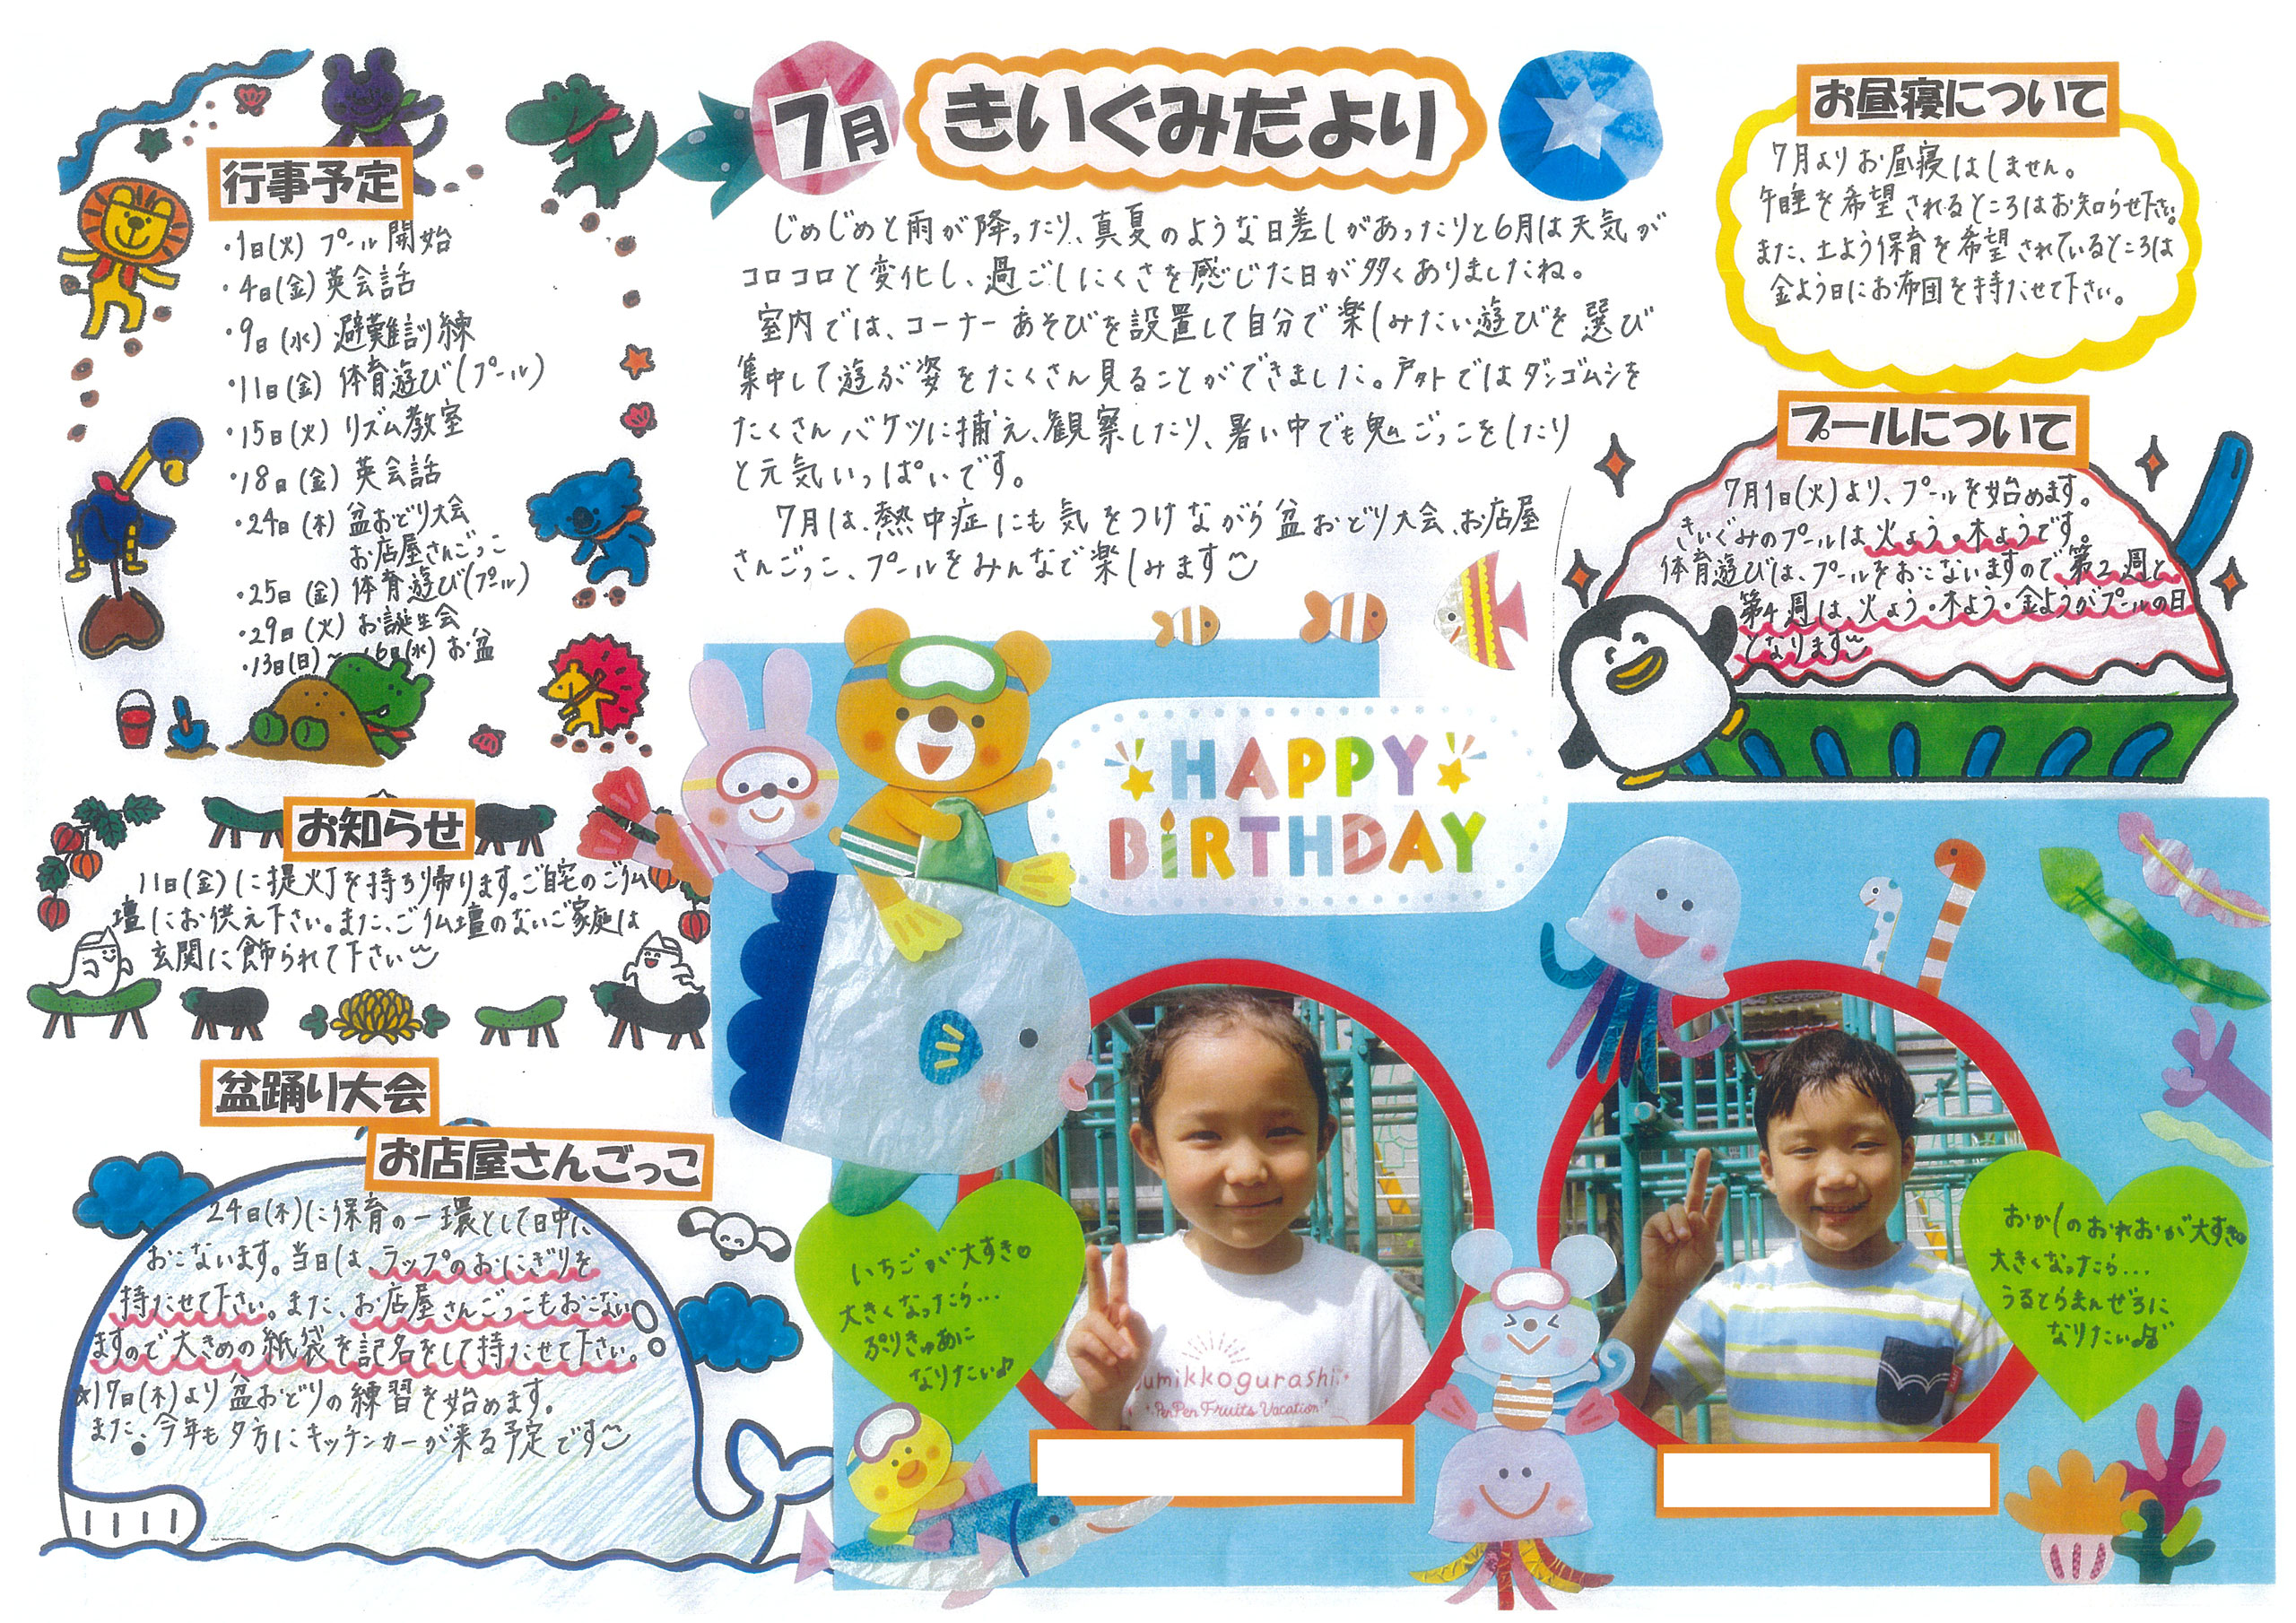 7月
きいぐみだより
じめじめと雨が降ったり、真夏のような日差しがあったりと6月は天気が
コロコロと変化し、過ごしにくさを感じた日が多くありましたね。
室内では、コーナーあそびを設置して自分で楽しみたい遊びを選び
集中して遊ぶ姿をたくさん見ることができました。戸外ではダンゴムシを
たくさんバケツに捕え、観察したり、暑い中でも鬼ごっこをしたり
と元気いっぱいです。
7月は、熱中症にも気をつけながら盆おどり大会、お店屋
さんごっこ、プールをみんなで楽しみます
行事予定
・1日(火) プール開始
・4日(金) 英会話
・9日(水) 避難訓練
・11日(金) 体育遊び(プール)
・15日(火) リズム教室
・18日(金) 英会話
・24日(木) 盆おどり大会
お店屋さんごっこ
・25日(金) 体育遊び(プール)
・29日(火) お誕生会
・13日(日)～16日(水) お盆
お知らせ
11日(金)に提灯を持ち帰ります。ご自宅のご仏
壇にお供え下さい。また、ご仏壇のないご家庭は
玄関に飾られて下さい
盆踊り大会
お店屋さんごっこ
24日(木)に保育の一環として日中に
おこないます。当日は、ラップのおにぎりを
持たせて下さい。また、お店屋さんごっこもおこない
ますので大きめの紙袋を記名をして持たせて下さい。
☆17日(木)より盆おどりの練習を始めます。
また、今年も夕方にキッチンカーが来る予定です
お昼寝について
7月よりお昼寝はしません。
午睡を希望されるところはお知らせ下さい。
また、土よう保育を希望されているところは
金よう日にお布団を持たせて下さい。
プールについて
7月1日(火)より、プールを始めます。
きいぐみのプールは火よう・木ようです。
体育遊びは、プールをおこないますので第2週と
第4週は、火よう・木よう・金ようがプールの日
となります
HAPPY
BIRTHDAY
いちごが大すき♡
大きくなったら…
ぷりきゅあに
なりたい♪
umikkogurashi
PenPen Fruits Vacation
おかしのおれおが大すき
大きくなったら…
うるとらまんぜろに
なりたい